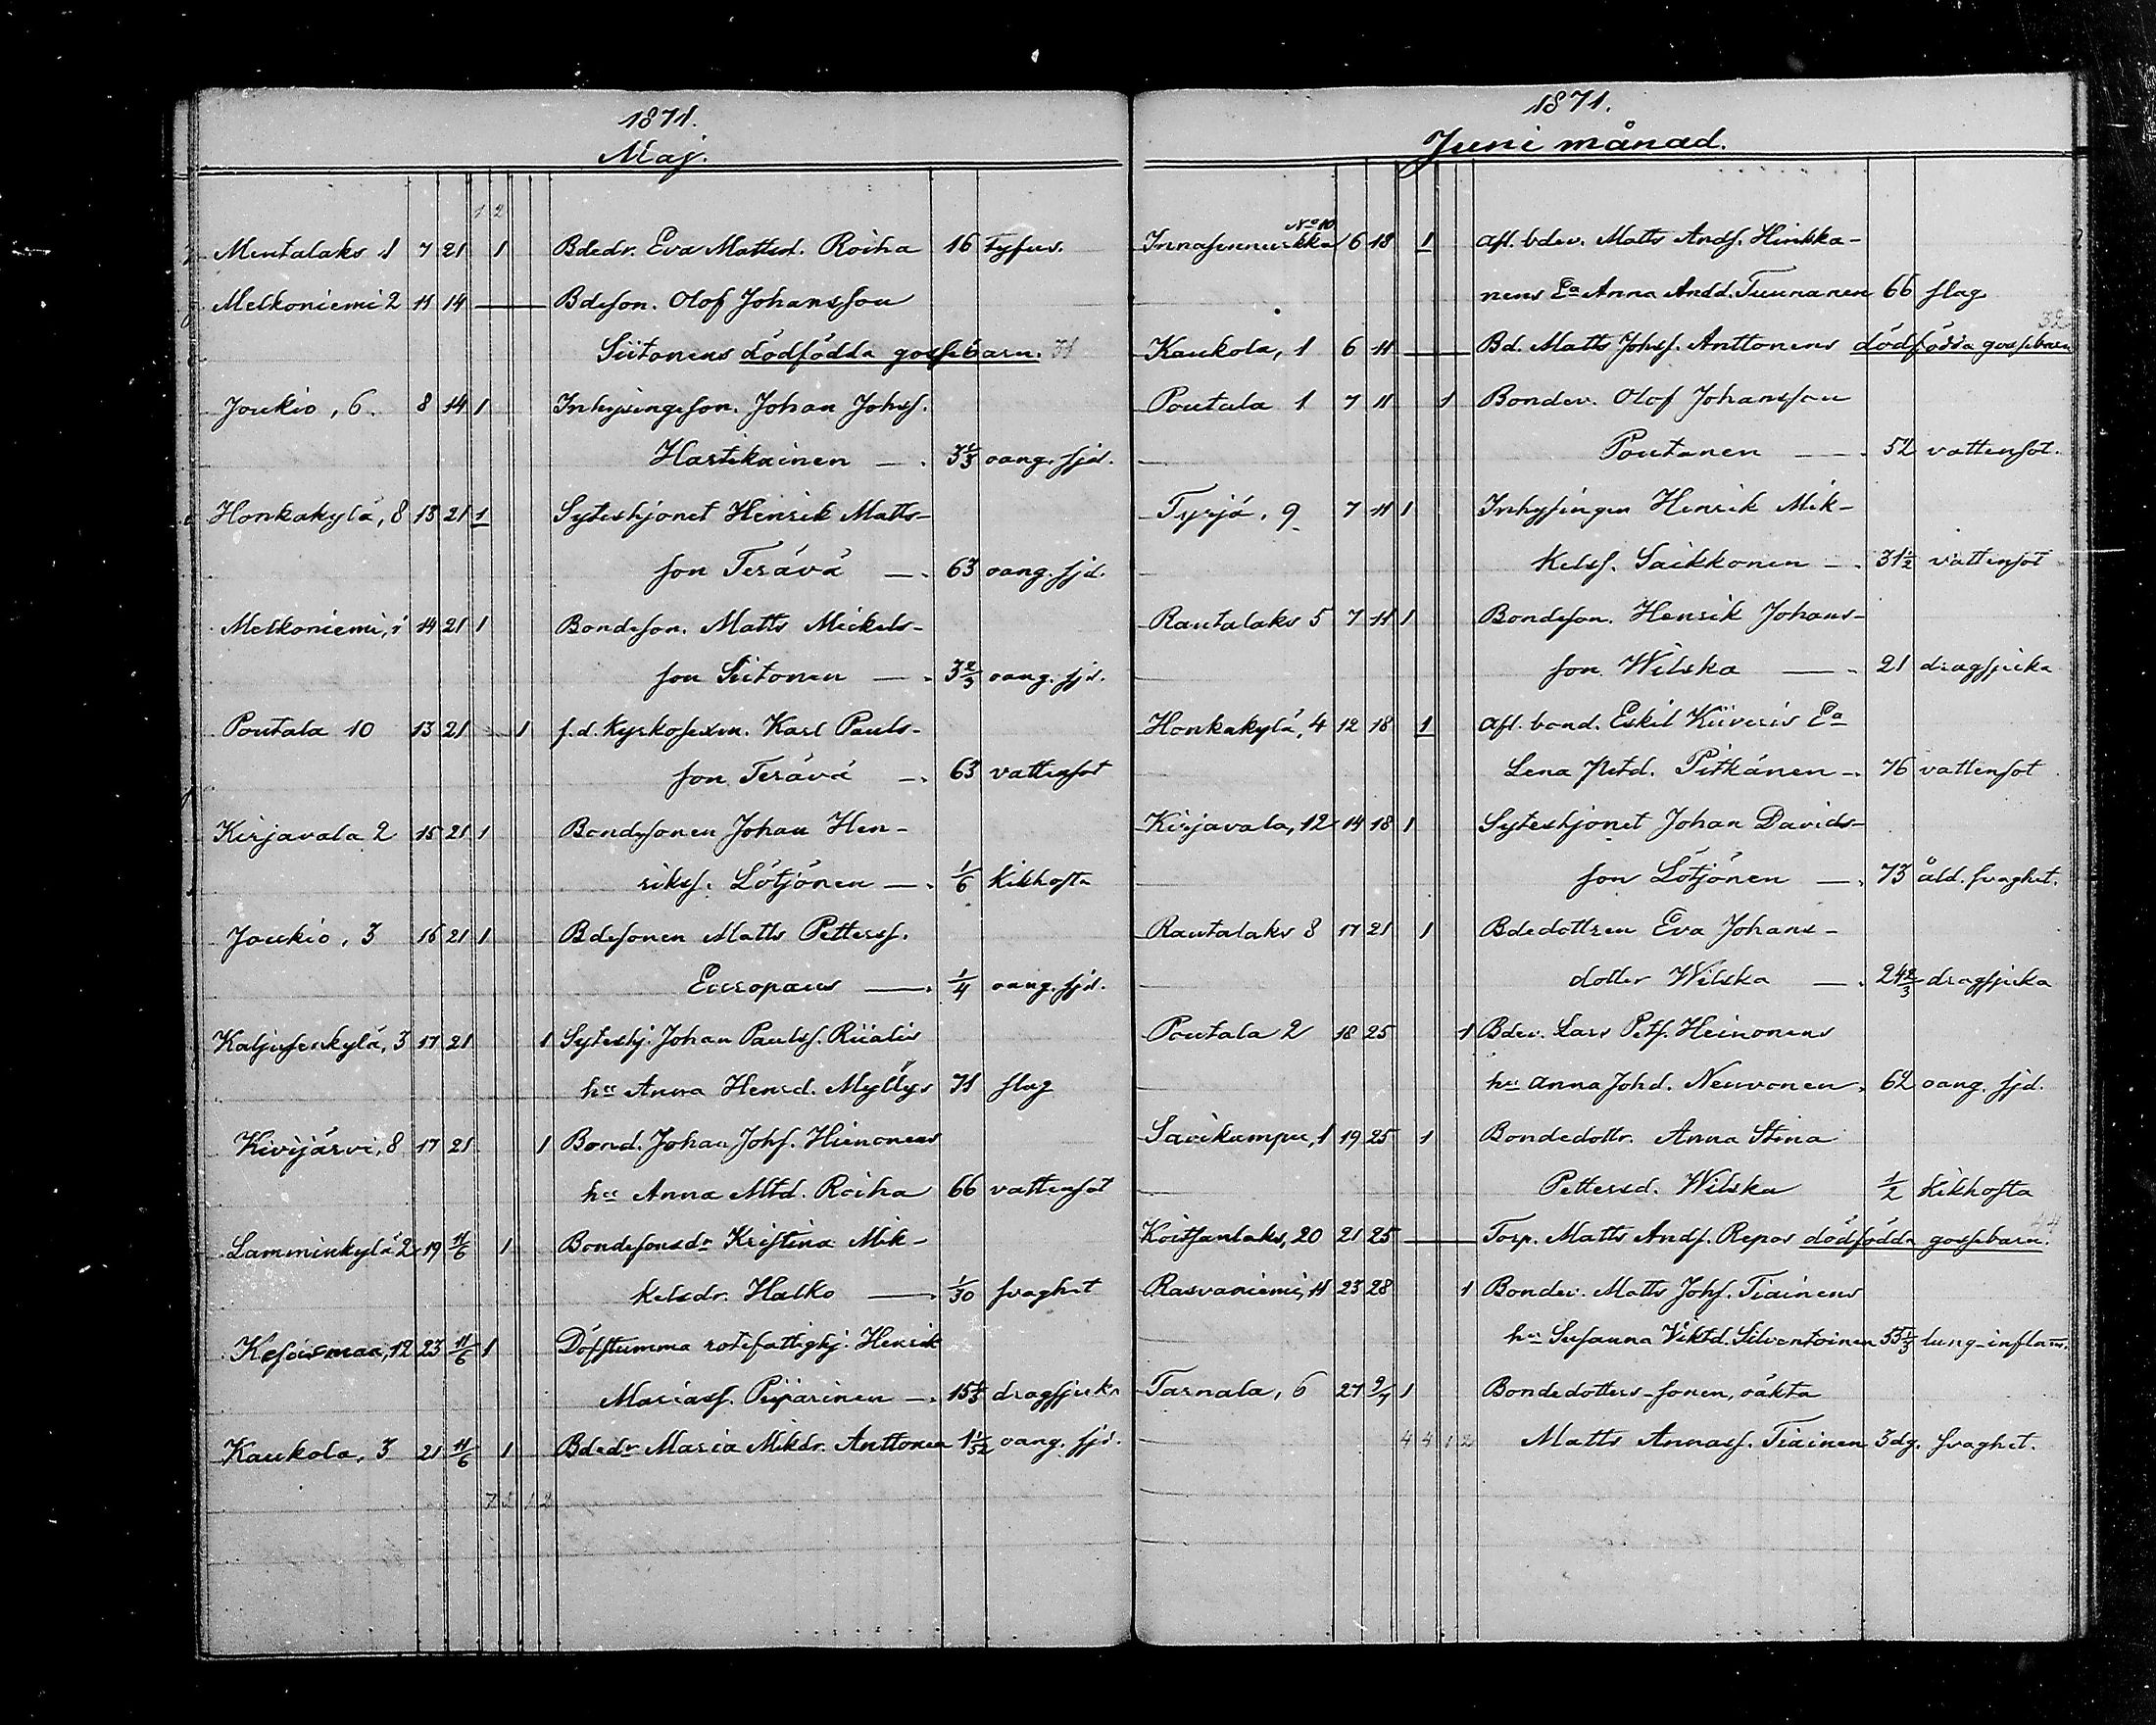 1871.
Maj.
1 2
Mentalaks 1 7 21 1 Bdedr. Eva Mattsd. Roiha 16 Tyfus.
Melkoniemi 2 11 14 Bdeson. Olof Johansson
Siitonens dödfödda gossebarn. 31
Joukio, 6. 8 14 1 Inhysingeson. Johan Johsf.
Hartikainen — 3 1/3 oang. sjd.
Honkakylä, 8 13 21 1 Syteshjonet Henrik Matts-
son Terävä — 63 oang. sjd.
Melkoniemi, 14 21 1 Bondeson. Matts Mickels-
son Siitonen — 3 2/3 oang. sjd.
Poutala 10 13 21 1 f.d. Kyrkosexm. Karl Pauls-
son Terävä — 63 vattensot
Kirjavala 2 15 21 1 Bondesonen Johan Hen-
riksf. Lötjönen — 1/6 Kikhosta
Joukio, 3 16 21 1 Bdesonen Matts Pettersf.
Europaeus — 1/4 oang. sjd.
Kaljusenkylä, 3 17 21 1 Syteshj. Johan Paulsf. Riialis
hu Anna Hensd. Myllys 71 slag
Kivijärvi, 8 17 21 1 Bond. Johan Johf. Hienonens
hu Anna Mtd. Roiha 66 vattensot
Lamminkylä 2 19 11/6 1 Bondesonsdr Kristina Mik-
kelsdr. Halko — 1/30 svaghet
Kesusmaa, 12 23 11/6 1 Döfstumma rotefattighj. Henrik
Mariasf. Pijärinen — 15 1/3 dragsjuka
Kaukola, 3 21 11/6 1 Bdedr Maria Mikdr. Anttonen 1 1/52 oang. sjd.
7 5 1 2
1871.
Juni månad.
No 10
Innasennurkka 6 18 1 Afl. bdev. Matts Andf. Hinkka-
nens Ea Anna Andd. Tuunanen 66 slag
32
Kaukola, 1 6 11 Bd. Matts Johsf. Anttonens dödfödda gossebarn
Poutala 1 7 11 1 Bondev. Olof Johansson
Poutanen — 52 vattensot.
Tyrjä. 9 7 11 1 Inhysingen Henrik Mik-
kelsf. Saikkonen — 31 1/2 vattensot
Rautalaks 5 7 11 1 Bondeson. Henrik Johans-
son Wilska — 21 dragsjuka
Honkakylä, 4 12 18 1 Afl. bond. Eskil Kiiveris Ea
Lena Petd. Pitkänen — 76 vattensot
Kirjavala, 12 14 18 1 Syteshjonet Johan Davids-
son Lötjönen — 73 åld. svaghet.
Rautalaks 8 17 21 1 Bdedottren Eva Johans-
dotter Wilska — 24 2/3 dragsjuka
Poutala 2 18 25 1 Bdev. Lars Petf. Heinonens
hu Anna Johd. Neuvonen 62 oang. sjd.
Savikumpu, 1 19 25 1 Bondedottr. Anna Stina
Pettersd. Wilska 1/2 Kikhosta
44
Koitsanlaks, 20 21 25 Torp. Matts Andf. Repos dödfödda gossebarn.
Rasvaniemi, 11 23 28 1 Bondev. Matts Johf. Tiainens
hu Susanna Viktd. Silventoinen 55 1/3 lung-inflam.
Tarnala, 6 27 9/7 1 Bondedotters-sonen, oäkta
4 4 1 2 Matts Annasf. Tiainen 3 dg. svaghet.